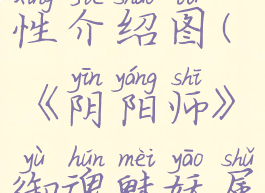 xìng jiè shào tú
性介绍图(
yīn yáng shī
《阴阳师》
yù hún mèi yāo shǔ
御魂魅妖属